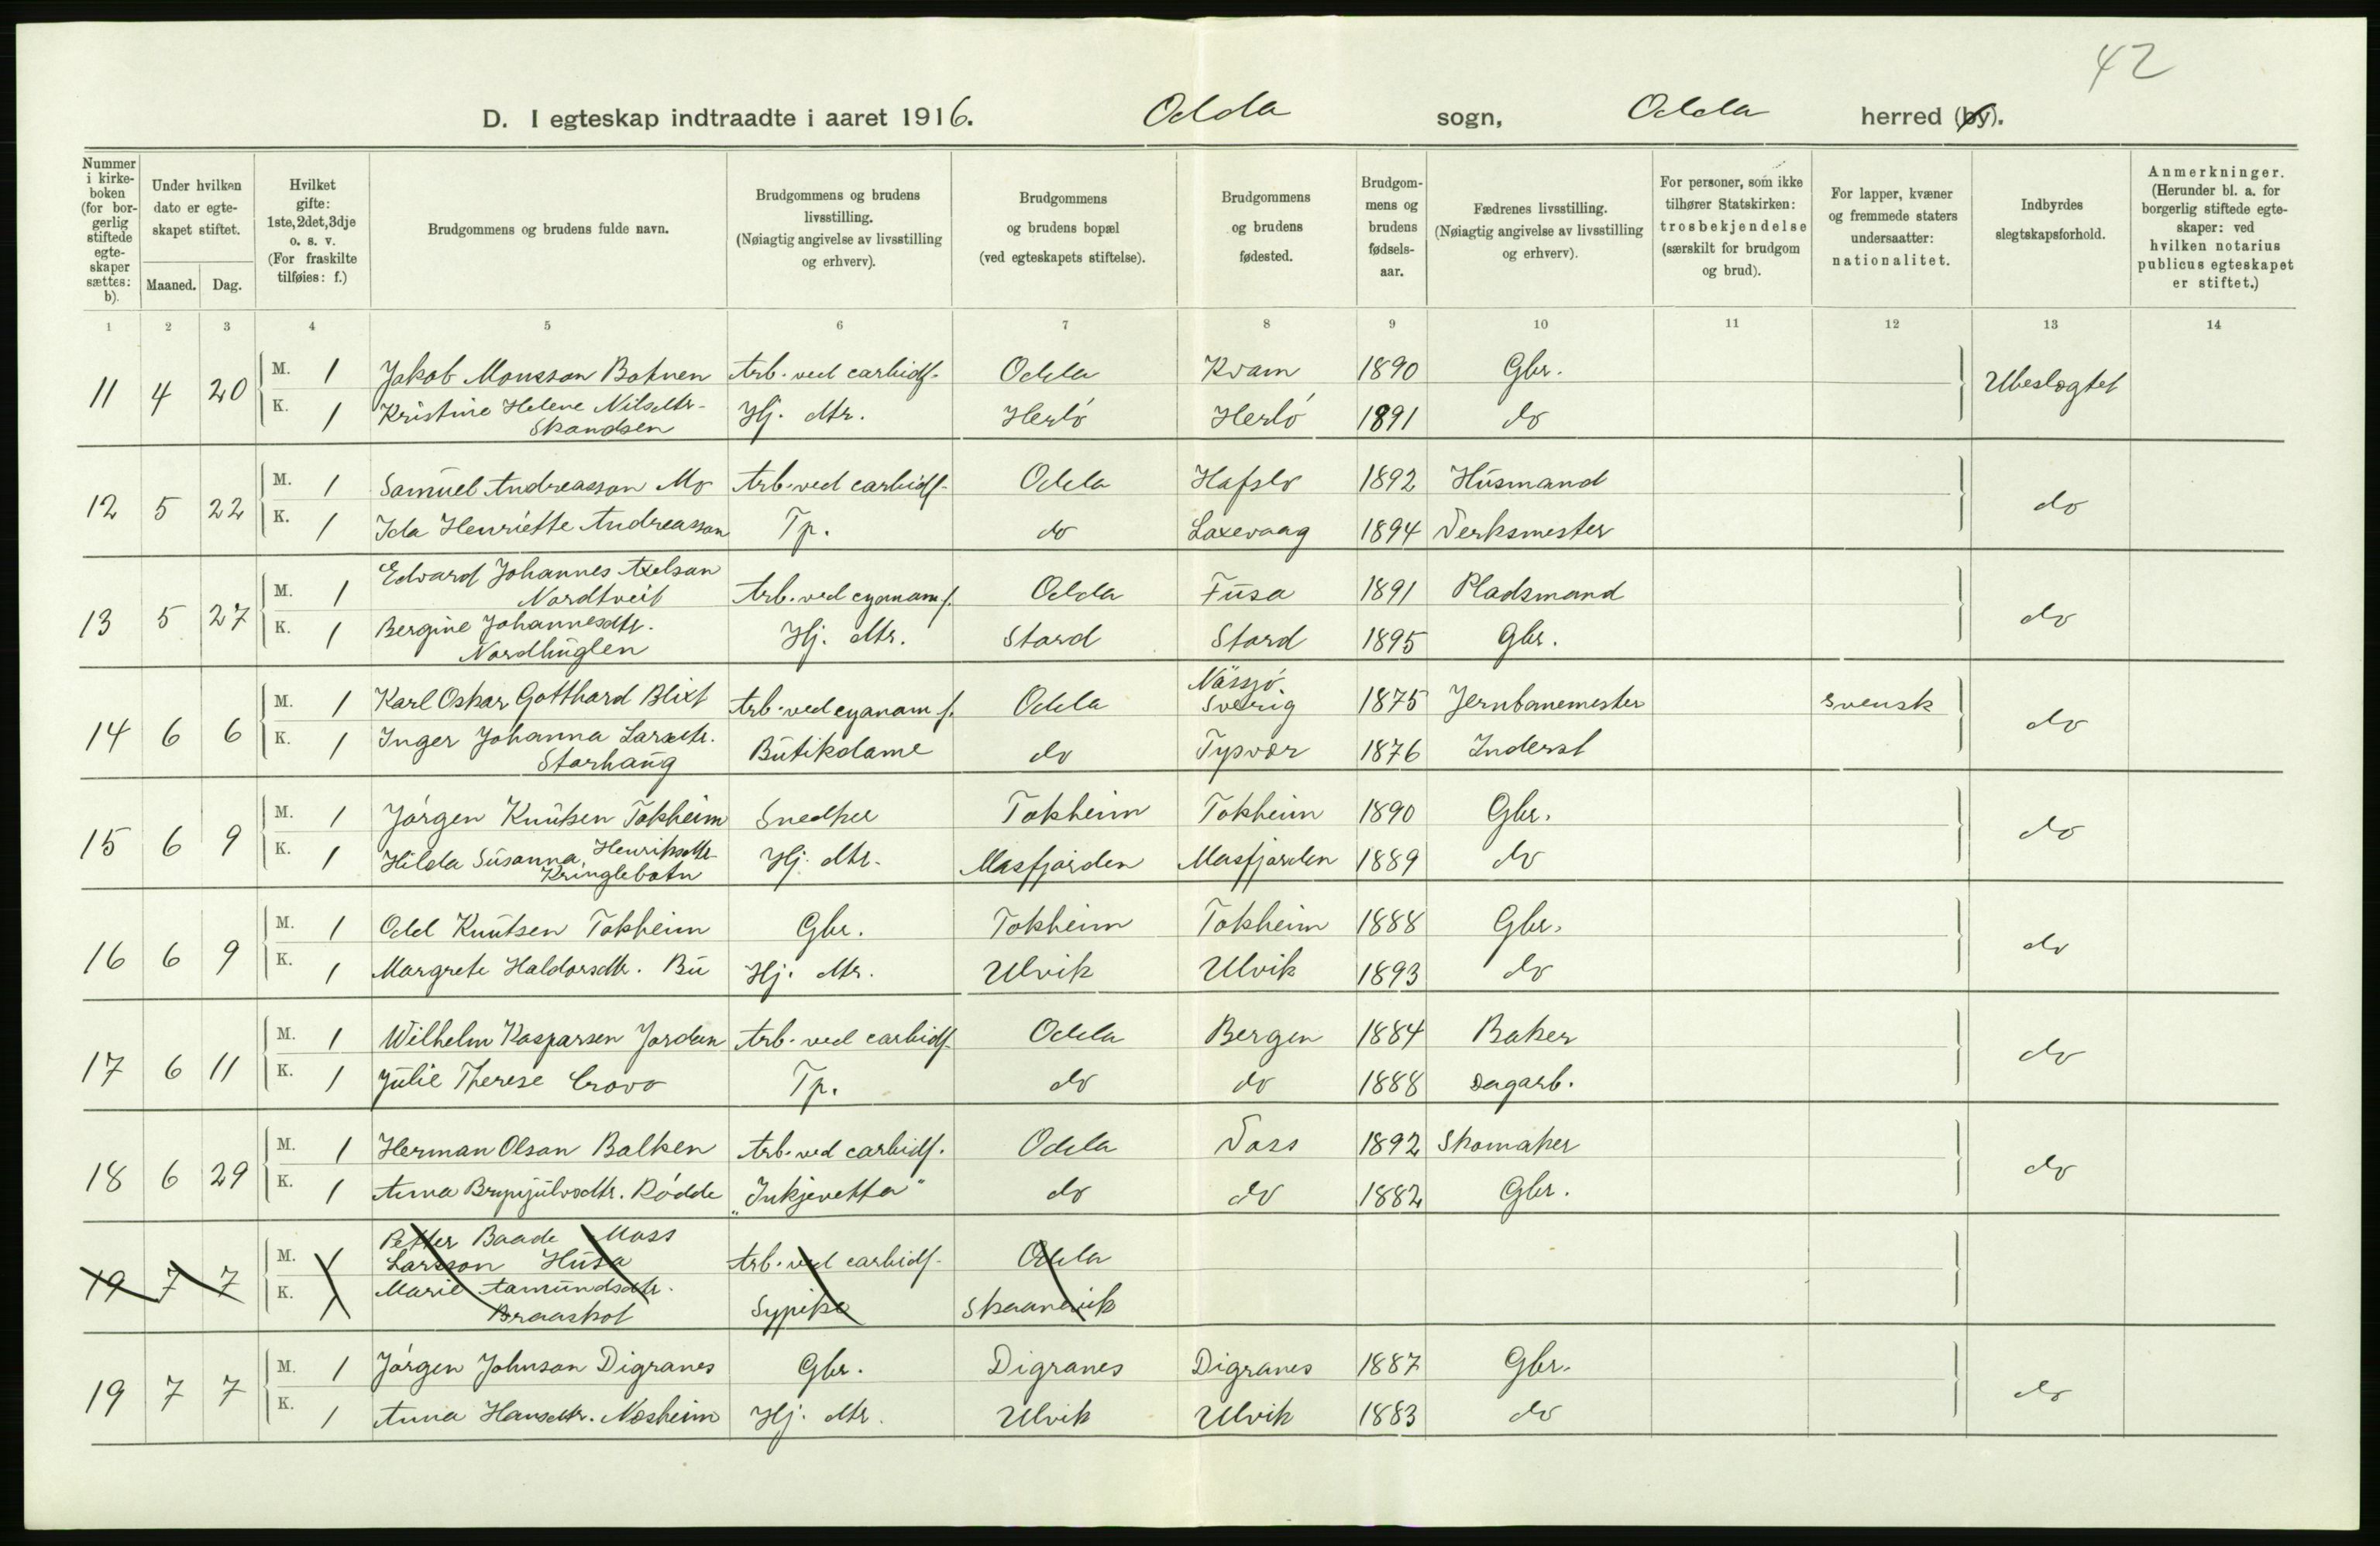 42
D. I egteskap indtraadte i aaret 1916. Odda sogn, Odda herred (by).
Nummer i kirkeboken (for borgerlig stiftede egteskaper sættes: b).
Under hvilken dato er egteskapet stiftet.
Maaned. Dag.
Hvilket gifte: 1ste, 2det, 3dje o. s. v. (For fraskilte tilføies: f.)
Brudgommens og brudens fulde navn.
Brudgommens og brudens livsstilling. (Nøiagtig angivelse av livsstilling og erhverv).
Brudgommens og brudens bopæl (ved egteskapets stiftelse).
Brudgommens og brudens fødested.
Brudgommens og brudens fødselsaar.
Fædrenes livsstilling. (Nøiagtig angivelse av livsstilling og erhverv).
For personer, som ikke tilhører Statskirken: trosbekjendelse (særskilt for brudgom og brud).
For lapper, kvæner og fremmede staters undersaatter: nationalitet.
Indbyrdes slegtskapsforhold.
Anmerkninger. (Herunder bl. a. for borgerlig stiftede egteskaper: ved hvilken notarius publicus egteskapet er stiftet.)
1 2 3 4 5 6 7 8 9 10 11 12 13 14
11 4 20 M. 1 Jakob Monsson Botnen Arb. ved carbidf. Odda Kvam 1890 Gbr. Ubeslægtet
K. 1 Kristine Helene Nilsdtr. Skandsen Hj. dtr. Herlö Herlö 1891 do
12 5 22 M. 1 Samuel Andreasson Mo Arb. ved carbidf. Odda Hafslo 1892 Husmand do
K. 1 Ida Henriette Andreasson Tp. do Laxevaag 1894 Verksmester
13 5 27 M. 1 Edvard Johannes Axelson Nordtveit Arb. ved cyanamf. Odda Fusa 1891 Pladsmand do
K. 1 Bergine Johannesdtr. Nordhuglen Hj. dtr. Stord Stord 1895 Gbr.
14 6 6 M. 1 Karl Oskar Gotthard Blixt Arb. ved cyanamf. Odda Nässjö Sverig 1875 Jernbanemester svensk do
K. 1 Inger Johanna Larsdtr. Storhaug Butikdame do Tysvær 1876 Inderst
15 6 9 M. 1 Jörgen Knutsen Tokheim Snedker Tokheim Tokheim 1890 Gbr. do
K. 1 Hilda Susanna Henriksdtr. Kringlebotn Hj. dtr. Masfjorden Masfjorden 1889 do
16 6 9 M. 1 Odd Knutsen Tokheim Gbr. Tokheim Tokheim 1888 Gbr. do
K. 1 Margrete Haldorsdtr. Bu Hj. dtr. Ulvik Ulvik 1893 do
17 6 11 M. 1 Wilhelm Kasparsen Jordan Arb. ved carbidf. Odda Bergen 1884 Baker do
K. 1 Julie Therese Crovo Tp. do do 1888 Dagarb.
18 6 29 M. 1 Herman Olson Balken Arb. ved carbidf. Odda Voss 1892 Skomaker do
K. 1 Anna Brynjulvsdtr. Rödde "Inkjevetta" do do 1882 Gbr.
19 7 7 M. 1 Petter Baade Moss Larsson Husa Arb. ved carbidf. Odda
K. 1 Marie Aamundsdtr. Braaskot Sypike Skaanevik
19 7 7 M. 1 Jörgen Johnson Digranes Gbr. Digranes Digranes 1887 Gbr. do
K. 1 Anna Hansdtr. Nesheim Hj. dtr. Ulvik Ulvik 1883 do